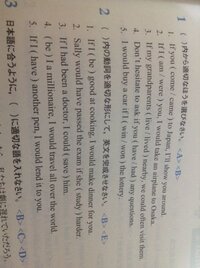 1 ( )内から適切なほうを選びなさい。 <A><B>
1. If you ( come / came ) to Japan, I'll show you around.
2. If I ( am / were ) you, I would take an airplane to Osaka.
3. If my grandparents ( live / lived ) nearby, we could often visit them.
4. Please ask me if you ( have / had ) any questions.
5. I would buy a car if I ( win / won ) the lottery.
2 ( )内の動詞を適切な形にして，英文を完成させなさい。 <B><E>
1. If I ( be ) good at cooking, I would make dinner for you.
2. Sally would have passed the exam if she ( study ) harder.
3. If I had been a doctor, I could ( save ) him.
4. ( be ) I a millionaire, I would travel all over the world.
5. If I ( have ) another pen, I would lend it to you.
3 日本語に合うように，( )に適切な語を入れなさい。 <B><C><D>